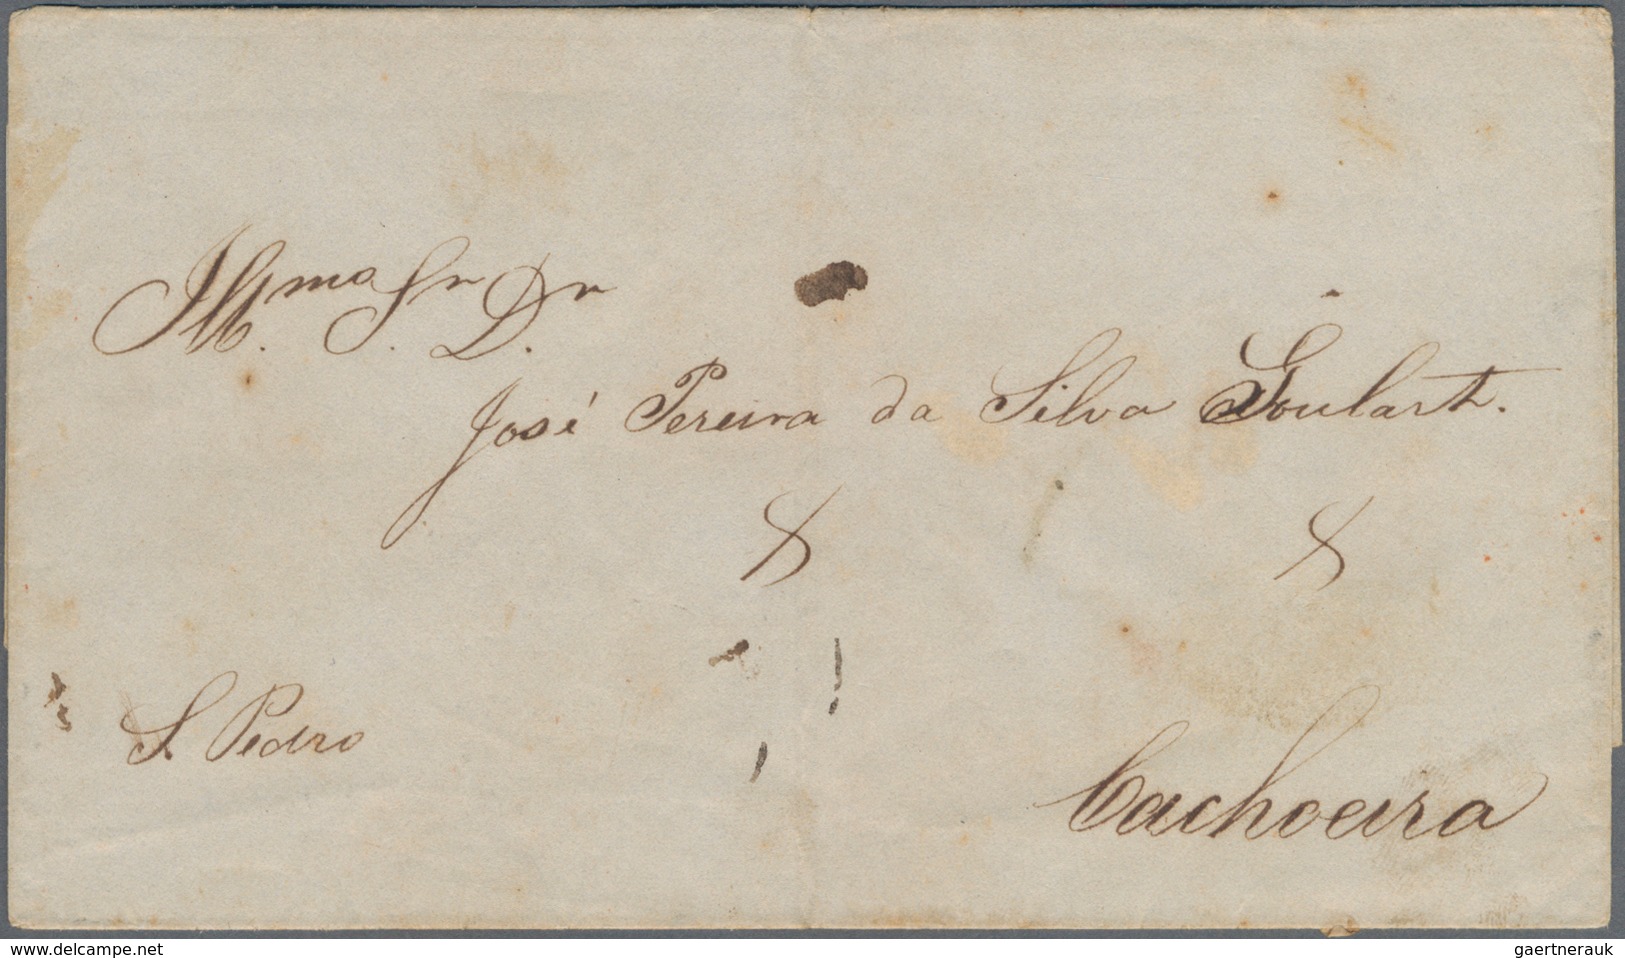 Illmo. Sr. Dr.
José Pereira da Silva Goulart.
S. Pedro
Cachoeira
www.delcampe.net
gaertnerauk